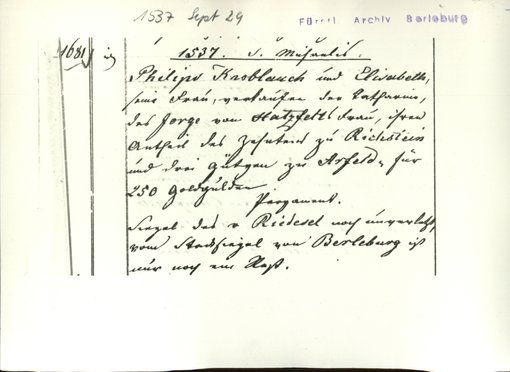 1537 Sept 29
Fürstl Archiv Berleburg
1681
1537. S. Michaelis.
Philips Knoblauch und Elisabeth,
seine Frau, verkaufen der Catharina,
des Jorge von Hatzfeld Frau, ihren
Antheil des Zehnten zu Richstein
und drei Gütgen zu Arfeld, für
250 Goldgulden
Pergament.
Siegel des v Riedesel noch unverletzt,
vom Stadtsiegel von Berleburg ist
nur noch ein Rest.